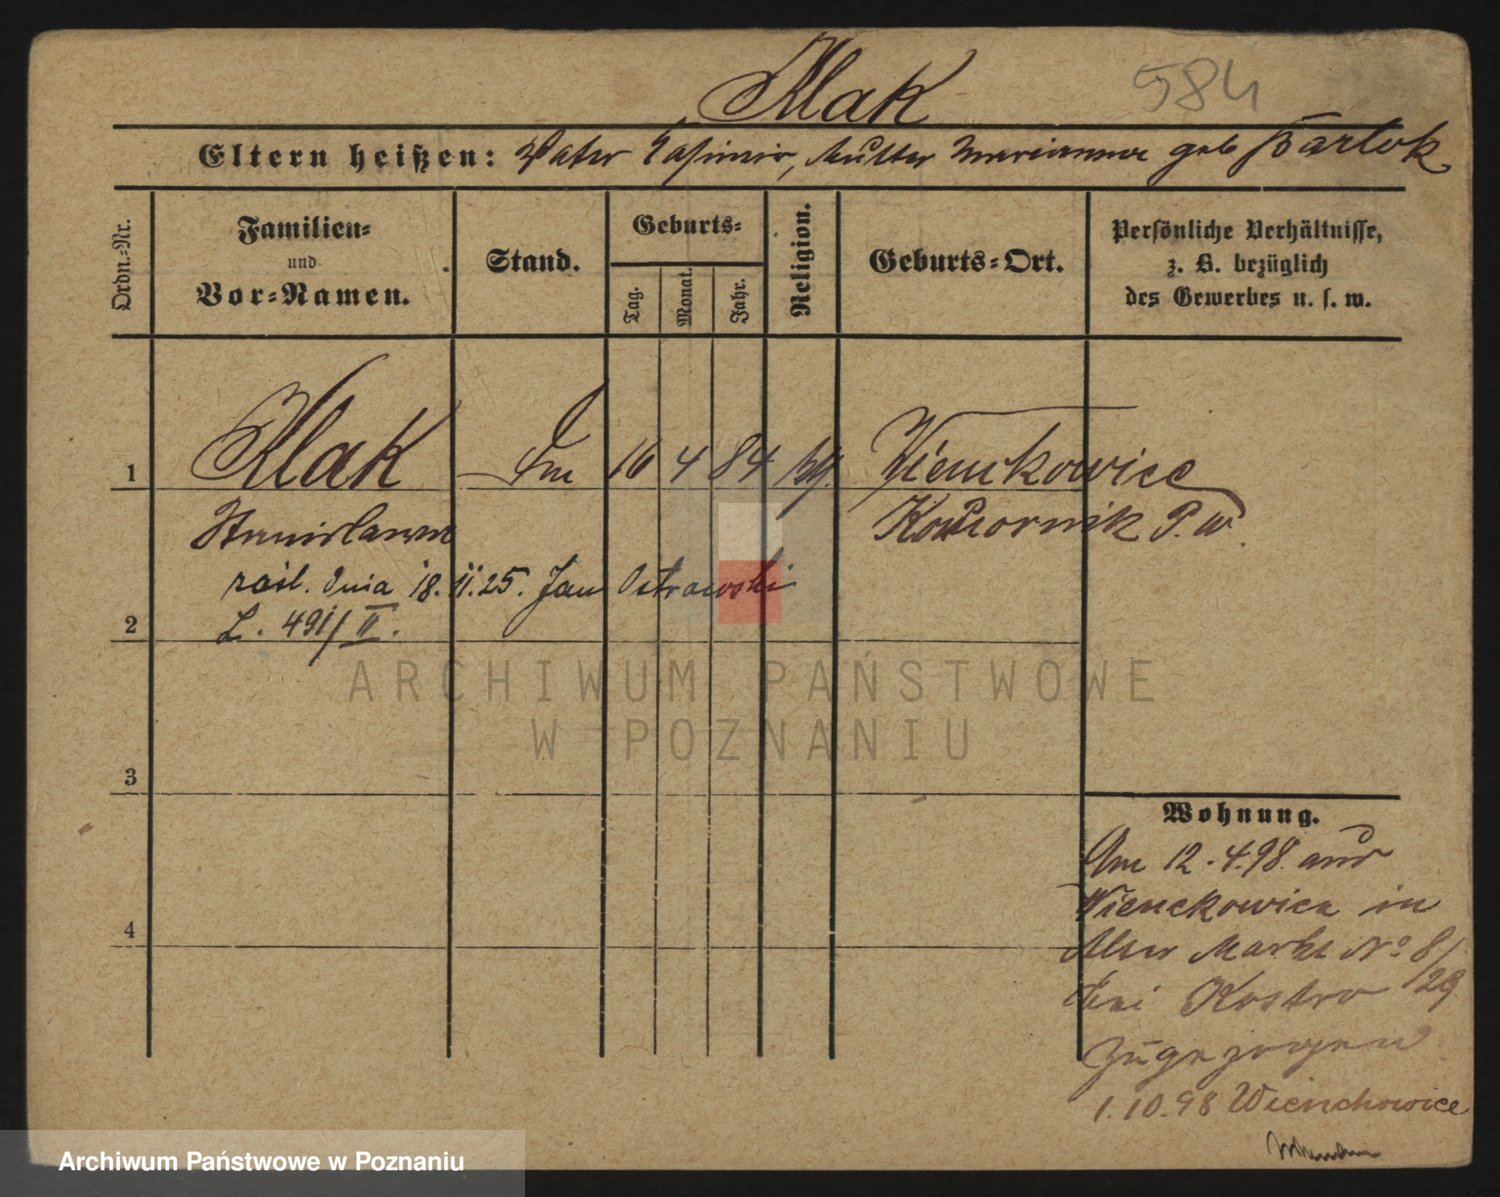 Klak
584
Eltern heißen: Vater Kasimir, Mutter Marianna geb Bartok
Ordn.-Nr.
Familien-
und
Vor-Namen.
Stand.
Geburts-
Tag.
Monat.
Jahr.
Religion.
Geburts-Ort.
Persönliche Verhältnisse,
z. B. bezüglich
des Gewerbes u. s. w.
1 Klak 16 4 84 Kienckowice
Stanislawa Komornik P. W.
dnia 18. II. 25. Jan Ostrowski
2 L. 491/II.
ARCHIWUM PAŃSTWOWE
W POZNANIU
3
4
Wohnung.
Am 12.4.98 aus
Wienckowice in
Alter Markt No 8/
29
bei Kostro
zugezogen
1.10.98 Wienchowice
Archiwum Państwowe w Poznaniu